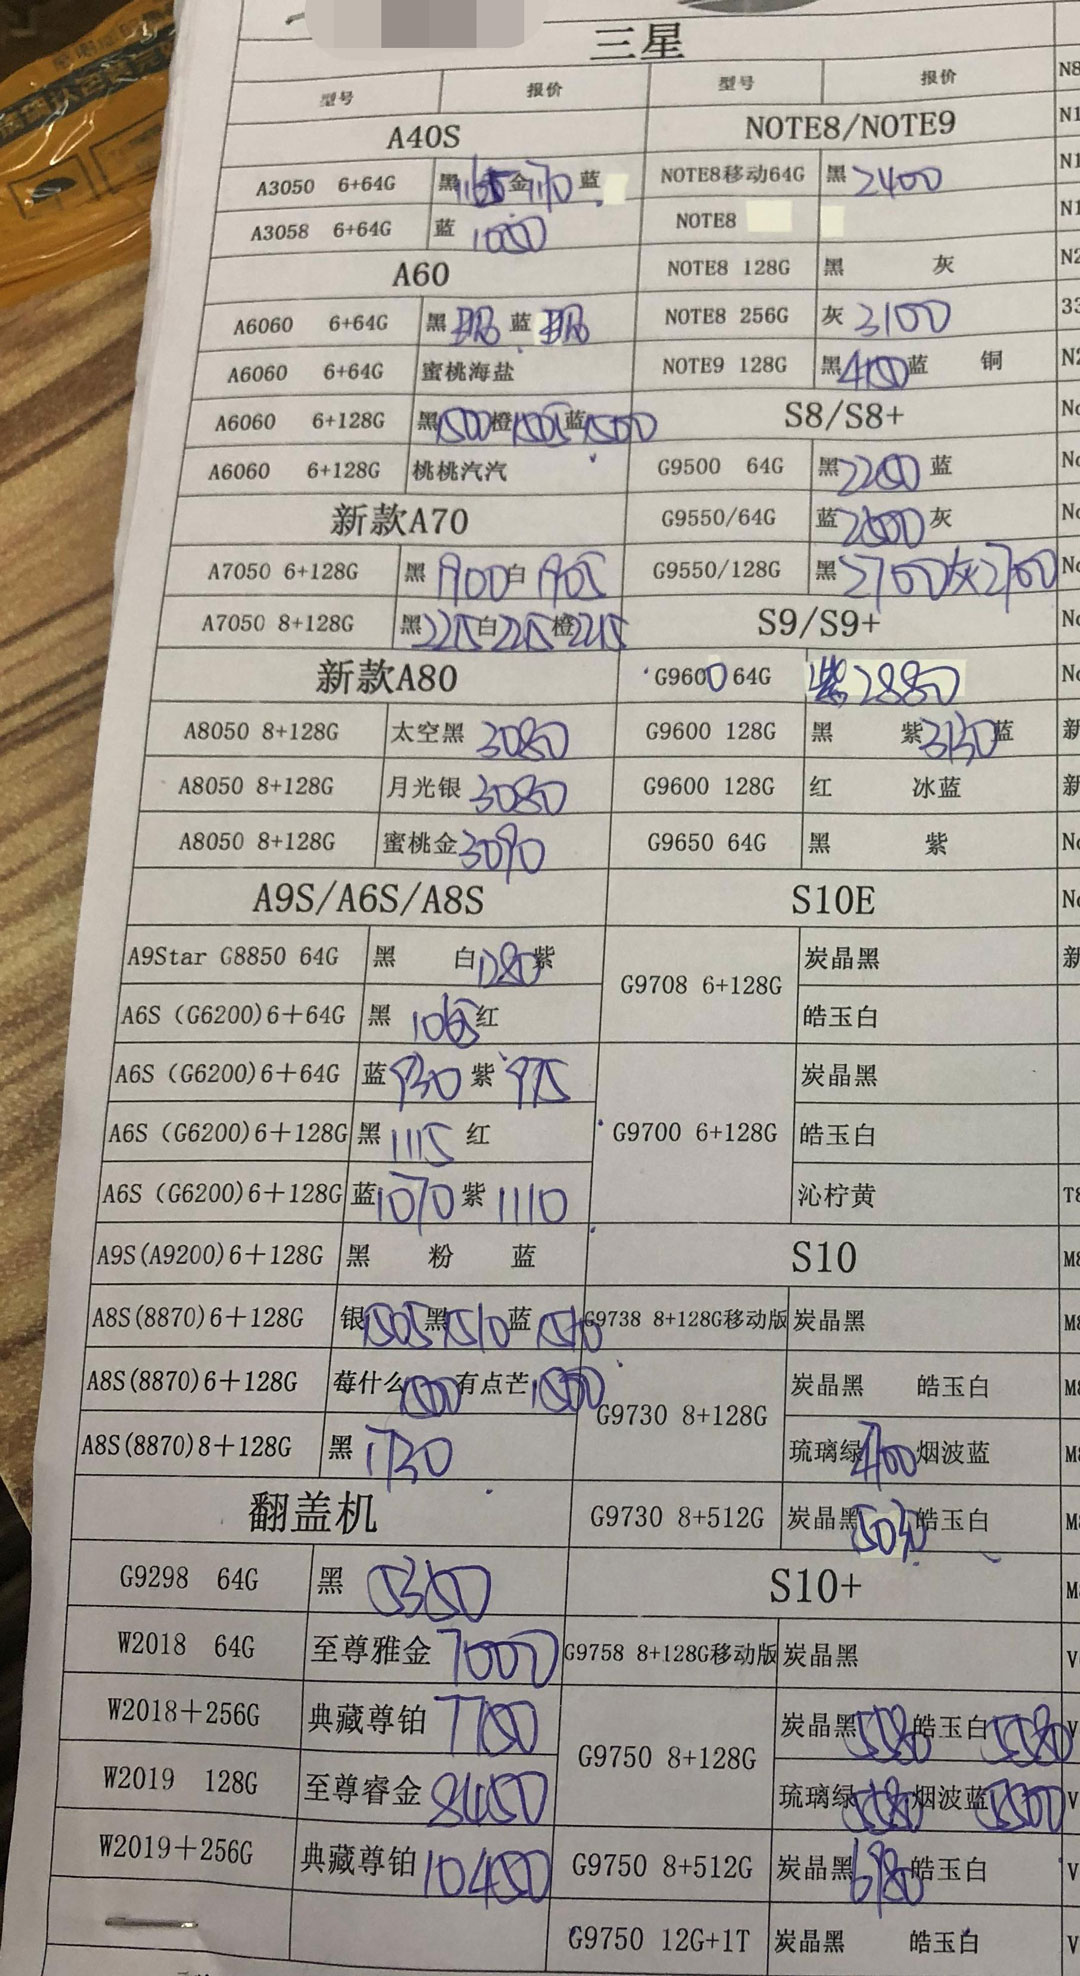 三星
型号 报价 型号 报价
A40S NOTE8/NOTE9
A3050 6+64G 黑 1165 金 1170 蓝 NOTE8移动64G 黑 2400
A3058 6+64G 蓝 NOTE8
A60 NOTE8 128G 黑 灰
A6060 6+64G 黑 蓝 NOTE8 256G 灰 3100
A6060 6+64G 蜜桃海盐 NOTE9 128G 黑 4150 蓝 铜
A6060 6+128G 黑 1500 橙 1505 蓝 1500 S8/S8+
A6060 6+128G 桃桃汽汽 G9500 64G 黑 2200 蓝
新款A70 G9550/64G 蓝 2600 灰
A7050 6+128G 黑 1900 白 1905 G9550/128G 黑 2700 灰 2700
A7050 8+128G 黑 2215 白 2215 橙 2215 S9/S9+
新款A80 G9600 64G 紫 2880
A8050 8+128G 太空黑 3080 G9600 128G 黑 紫 3130 蓝
A8050 8+128G 月光银 3080 G9600 128G 红 冰蓝
A8050 8+128G 蜜桃金 3090 G9650 64G 黑 紫
A9S/A6S/A8S S10E
A9Star G8850 64G 黑 白 1280 紫 G9708 6+128G 炭晶黑
A6S (G6200)6+64G 黑 1065 红 皓玉白
A6S (G6200)6+64G 蓝 930 紫 975 G9700 6+128G 炭晶黑
A6S (G6200)6+128G 黑 1115 红 皓玉白
A6S (G6200)6+128G 蓝 1070 紫 1110 沁柠黄
A9S(A9200)6+128G 黑 粉 蓝 S10
A8S(8870)6+128G 银 1505 黑 1510 蓝 1510 G9738 8+128G移动版 炭晶黑
A8S(8870)6+128G 莓什么 1500 有点芒 1500 G9730 8+128G 炭晶黑 皓玉白
A8S(8870)8+128G 黑 1730 琉璃绿 4700 烟波蓝
翻盖机 G9730 8+512G 炭晶黑 皓玉白
G9298 64G 黑 5350 S10+
W2018 64G 至尊雅金 7000 G9758 8+128G移动版 炭晶黑
W2018+256G 典藏尊铂 7750 G9750 8+128G 炭晶黑 5580 皓玉白 5580
W2019 128G 至尊睿金 8450 琉璃绿 5580 烟波蓝 5500
W2019+256G 典藏尊铂 10450 G9750 8+512G 炭晶黑 6980 皓玉白
G9750 12G+1T 炭晶黑 皓玉白